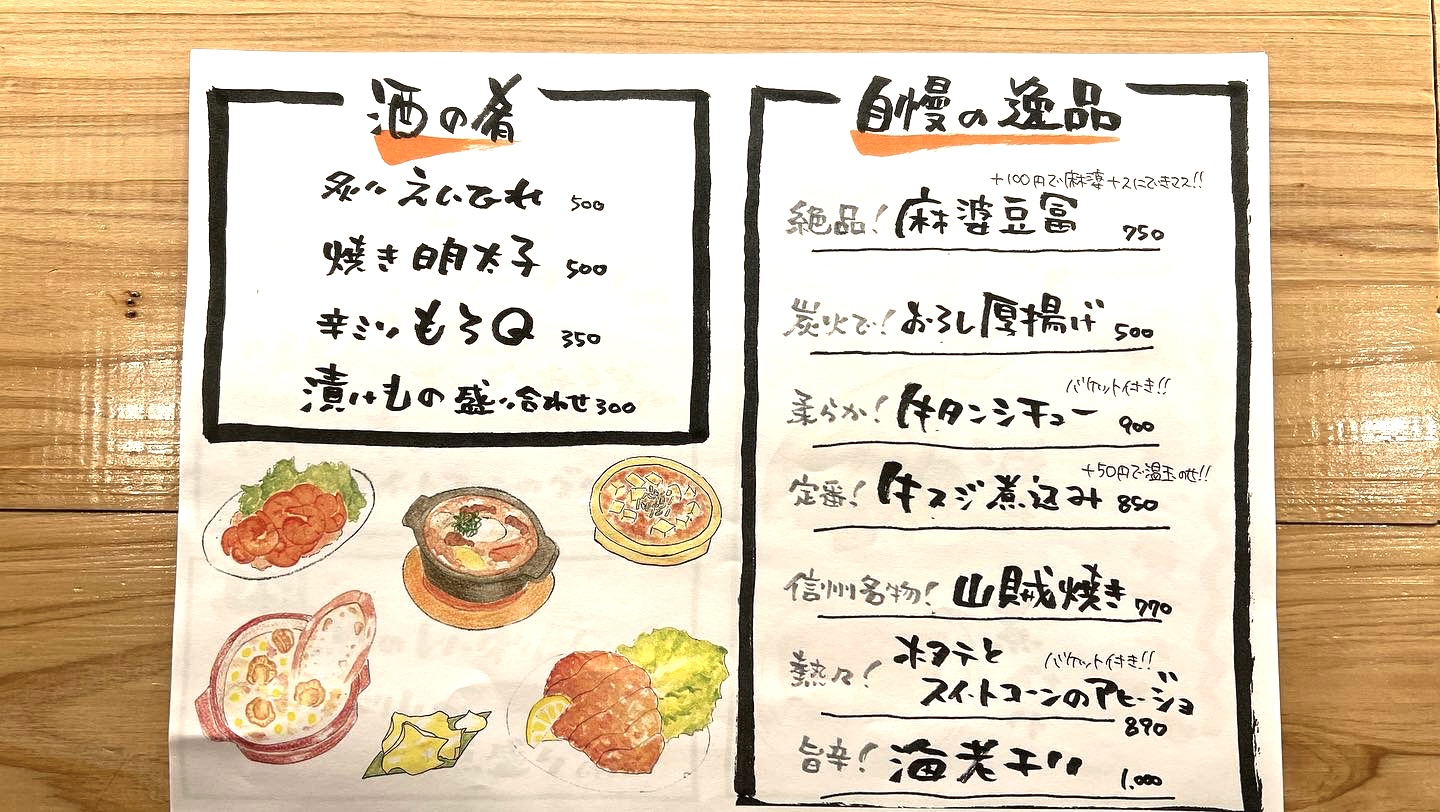 酒の肴
炙りえいひれ 500
焼き明太子 500
辛ミソもろQ 350
漬けもの盛り合わせ 300
自慢の逸品
+100円で麻婆ナスにできマス!!
絶品! 麻婆豆冨 750
炭火で! おろし厚揚げ 500
バケット付き!!
柔らか! 牛タンシチュー 900
+50円で温玉のせ!!
定番! 牛スジ煮込み 850
信州名物! 山賊焼き 770
熱々! ホタテと
バケット付き!!
スイートコーンのアヒージョ
890
旨辛! 海老チリ 1,000